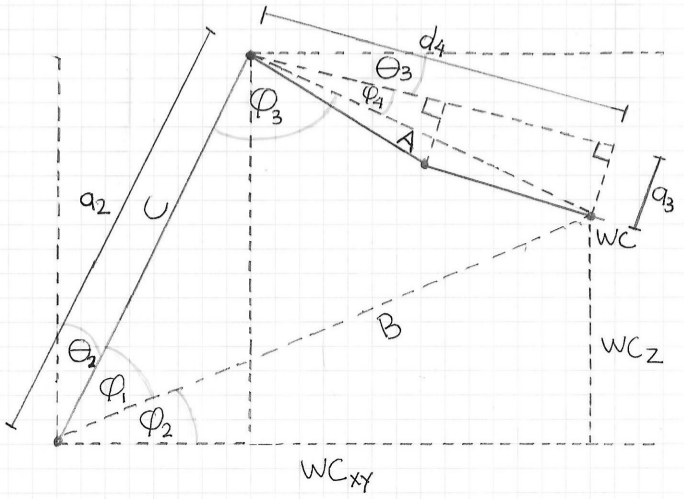 d4
θ3
φ4
φ3
A
a2
C
a3
WC
B
WCZ
θ2
φ1
φ2
WCXY